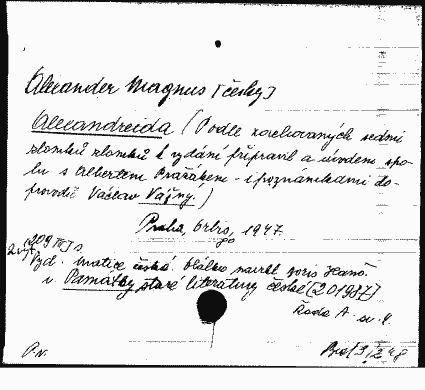 Alexander Magnus [česky]
Alexandreida (Podle zachovaných sedmi
zlomků zlomků k vydání připravil a úvodem spo-
lu s Albertem Pražákem - i poznámkami do-
provodil Václav Vážný.)
Praha, Orbis, 1947
209 [III] s.
2. vyd.
Vyd. Matice česká. Obálka navrhl Joris Hanč.
v. Památky staré literatury české (201987)
Řada A. sv. 4.
P.v.